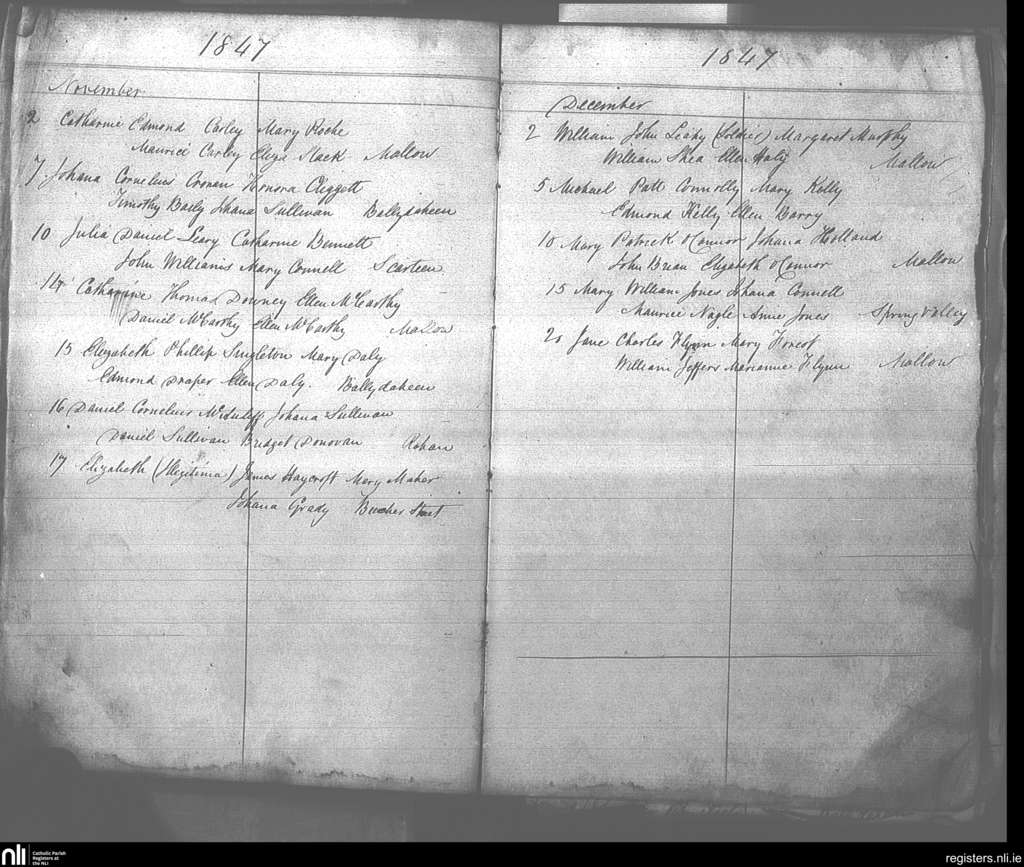 1847
November
2 Catharine Edmond Curley Mary Roche
Maurice Curley Eliza Slack Mallow
7 Johana Cornelius Cronan Honora Cliggott
Timothy Baily Johana Sullivan Ballydaheen
10 Julia Daniel Leary Catharine Bennett
John Williams Mary Connell Scarteen
14 Catharine Thomas Downey Ellen McCarthy
Daniel McCarthy Ellen McCarthy Mallow
15 Elizabeth Phillip Singleton Mary Daly
Edmond Draper Ellen Daly. Ballydaheen
16 Daniel Cornelius McAuliffe Johana Sullivan
Daniel Sullivan Bridget Donovan Rahan
17 Elizabeth (Illegitima) James Haycroft Mary Maher
Johana Grady Street
1847
December
2 William John Leahy (Soldier) Margaret Murphy
William Shea Ellen Mallow
5 Michael Patt Connolly Mary Kelly
Edmond Kelly Ellen Barry
10 Mary Patrick O'Connor Johana Holland
John Brean Elizabeth O'Connor Mallow
15 Mary William Jones Johana Connell
Maurice Nagle Anne Jones Spring Valley
Jane Charles Flynn Mary Forest
William Jeffers Marianne Flynn Mallow
nli Catholic Parish
Registers at
the NLI
registers.nli.ie